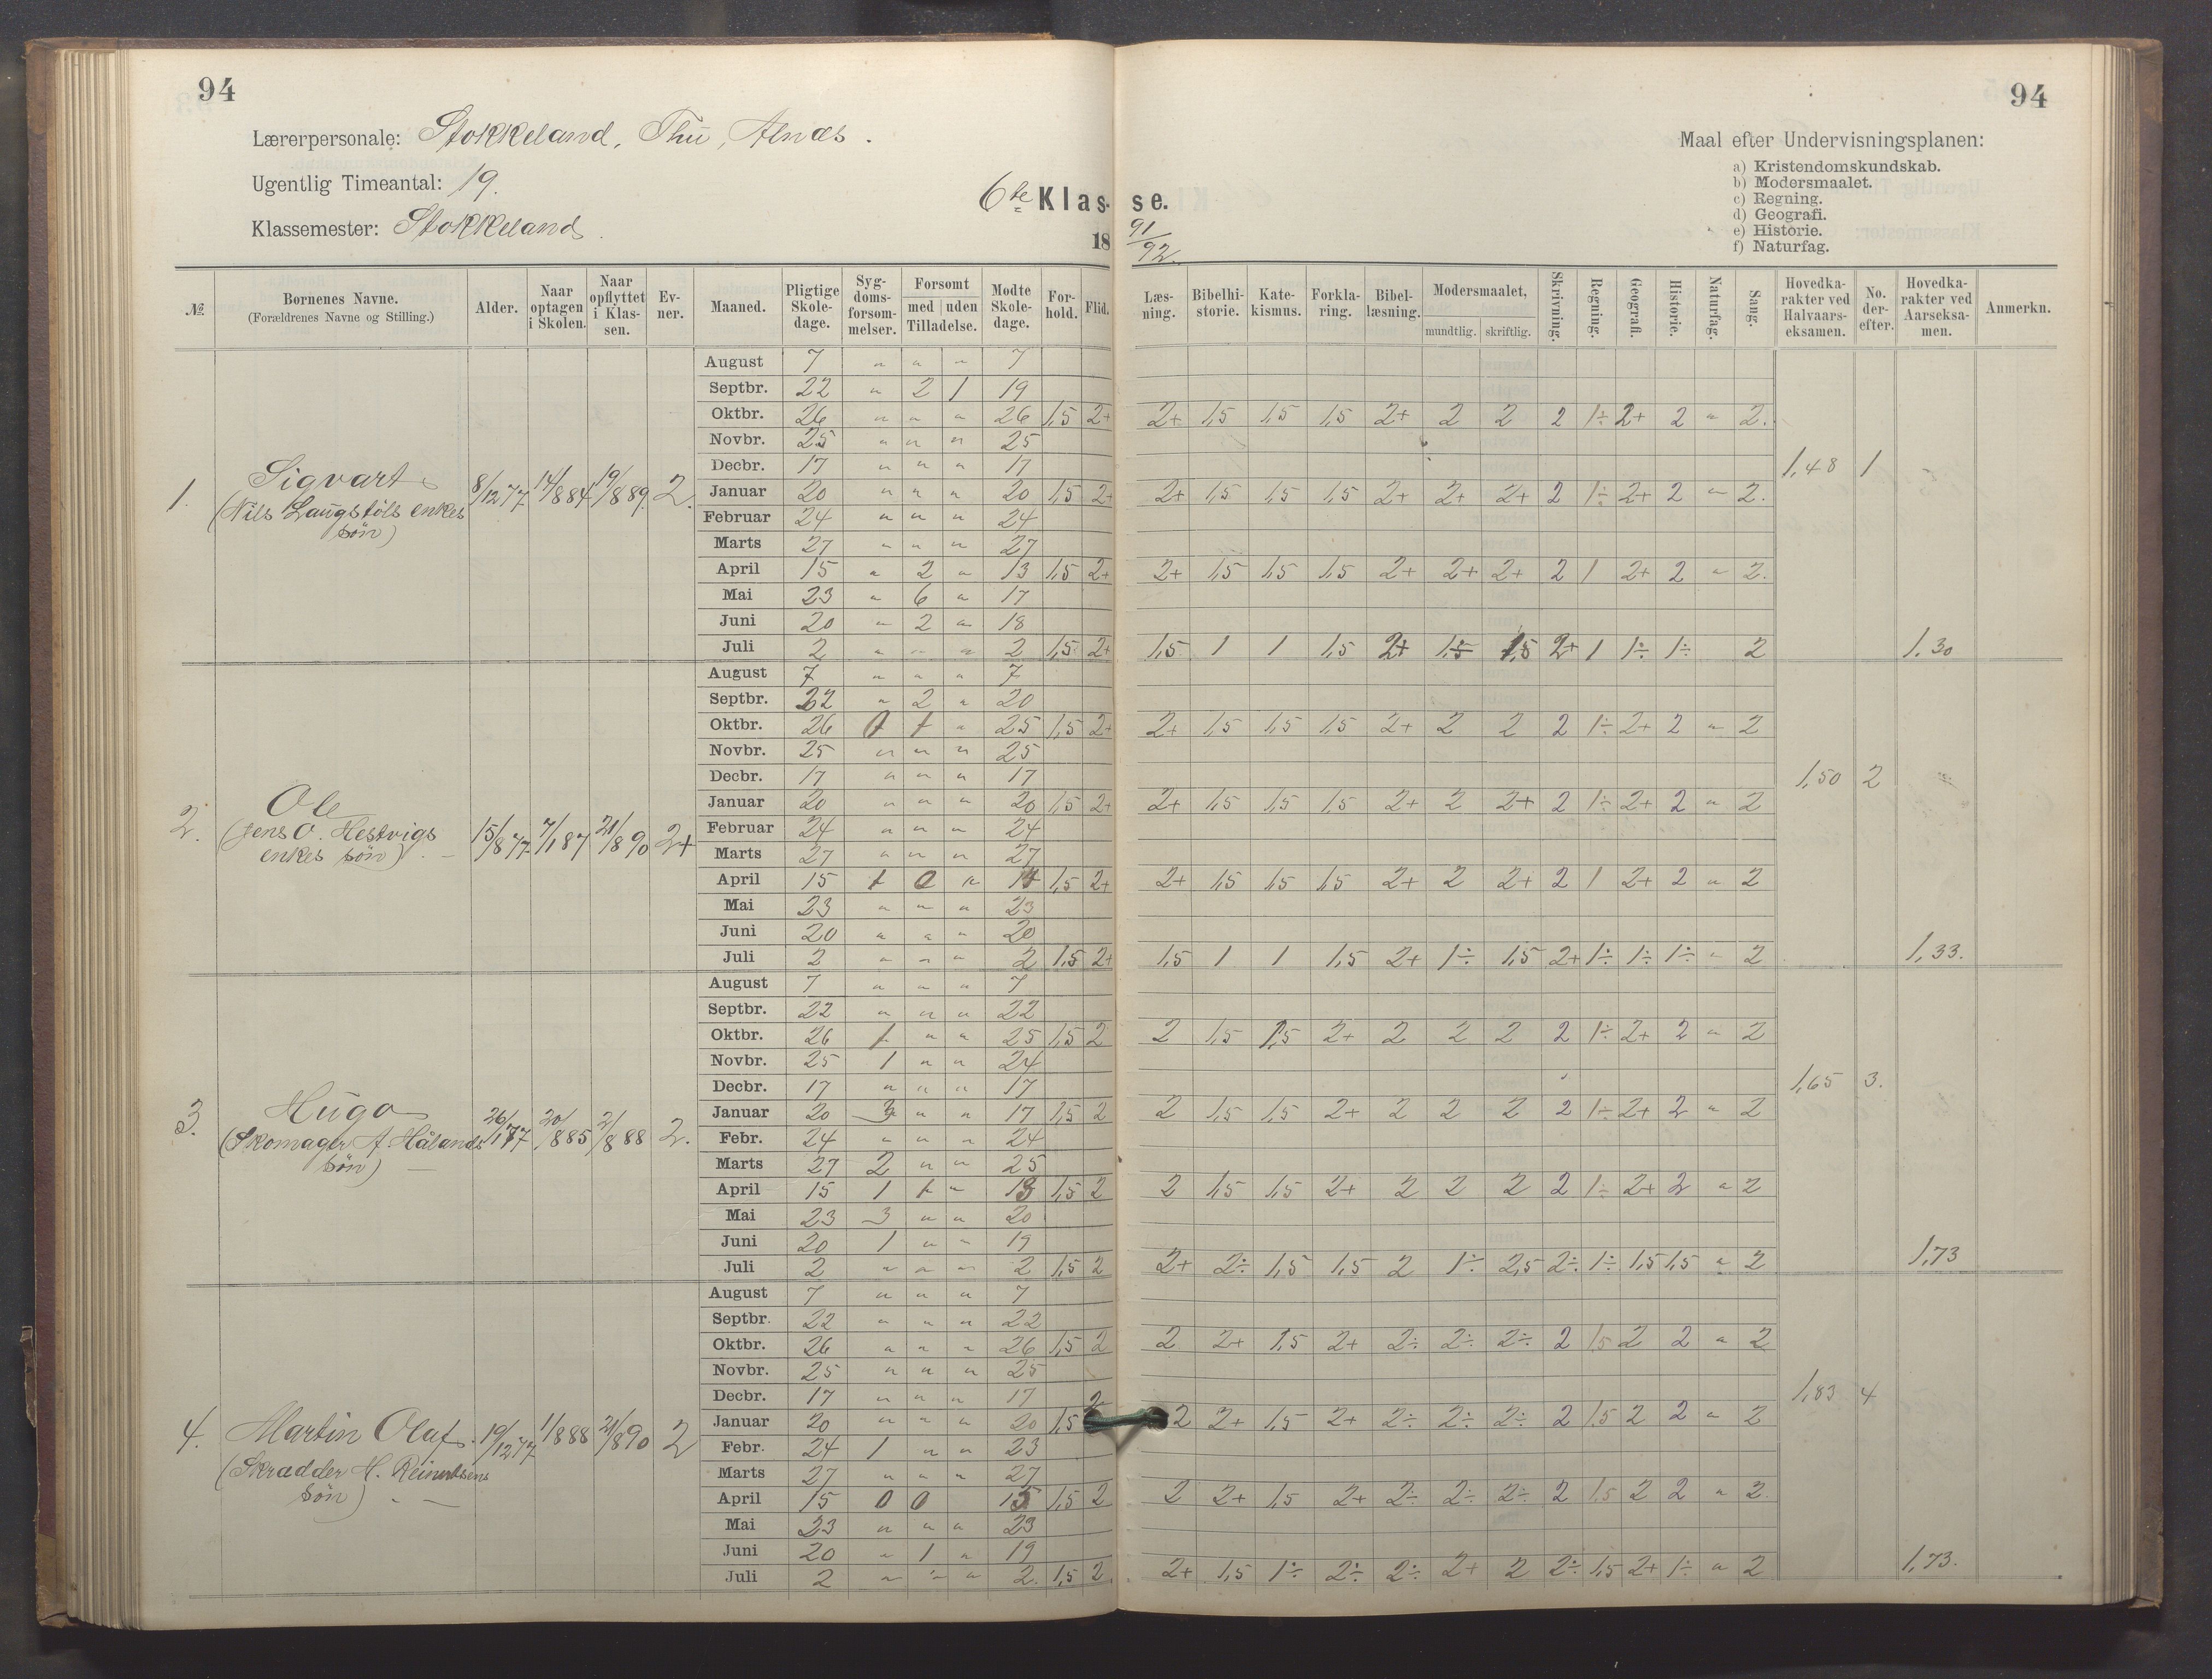 94
94
Lærerpersonale: Stokkeland, Thu, Alnæs.
Ugentlig Timeantal: 19.
Klassemester: Stokkeland.
6te Klasse.
18 91/92.
Maal efter Undervisningsplanen:
a) Kristendomskundskab.
b) Modersmaalet.
c) Regning.
d) Geografi.
e) Historie.
f) Naturfag.
№ | Bornenes Navne. (Forældrenes Navne og Stilling.) | Alder. | Naar optagen i Skolen. | Naar opflyttet i Klassen. | Evner. | Maaned. | Pligtige Skoledage. | Sygdomsforsommelser. | Forsomt med uden Tilladelse. | Modte Skoledage. | Forhold. | Flid. | Læsning. | Bibelhistorie. | Katekismus. | Forklaring. | Bibellæsning. | Modersmaalet, mundtlig. skriftlig. | Skrivning. | Regning. | Geografi. | Historie. | Naturfag. | Sang. | Hovedkarakter ved Halvaarseksamen. | No. derefter. | Hovedkarakter ved Aarseksamen. | Anmerkn.
1. Sigvart (Nils Laugstöls enkes sön) 8/12 77 14/8 84 19/8 89. 2.
August 7 " " " 7
Septbr. 22 " 2 1 19
Oktbr. 26 " " " 26 1,5 2+ 2+ 1,5 1,5 1,5 2+ 2 2 2 1÷ 2+ 2 " 2.
Novbr. 25 " " " 25
Decbr. 17 " " " 17 1,48 1
Januar 20 " " " 20 1,5 2+ 2+ 1,5 1,5 1,5 2+ 2+ 2+ 2 1÷ 2+ 2 " 2.
Februar 24 " " " 24
Marts 27 " " " 27
April 15 " 2 " 13 1,5 2+ 2+ 1,5 1,5 1,5 2+ 2+ 2+ 2 1 2+ 2 " 2.
Mai 23 " 6 " 17
Juni 20 " 2 " 18
Juli 2 " " " 2 1,5 2+ 1,5 1 1 1,5 2+ 1,5 1,5 2+ 1 1÷ 1÷ 2 1,30
2. Ole (Jens O. Hestvigs enkes sön) 15/8 77 7/1 87 21/8 90 2+
August 7 " " " 7
Septbr. 22 " 2 " 20
Oktbr. 26 " 25 1,5 2+ 2+ 1,5 1,5 1,5 2+ 2 2 2 1÷ 2+ 2 " 2
Novbr. 25 " " " 25
Decbr. 17 " " " 17 1,50 2
Januar 20 " " " 20 1,5 2+ 2+ 1,5 1,5 1,5 2+ 2 2+ 2 1÷ 2+ 2 " 2
Februar 24 " " " 24
Marts 27 " " " 27
April 15 1 0 " 14 1,5 2+ 2+ 1,5 1,5 1,5 2+ 2 2+ 2 1 2+ 2 " 2
Mai 23 " " " 23
Juni 20 " " " 20
Juli 2 " " " 2 1,5 2+ 1,5 1 1 1,5 2+ 1÷ 1,5 2+ 1÷ 1÷ 1÷ " 2 1,33.
3. Hugo (Skomager A. Hålands sön) 26/1 77 20/ 885 2/8 88 2.
August 7 " " " 7
Septbr. 22 " " " 22
Oktbr. 26 1 " " 25 1,5 2 2 1,5 1,5 2+ 2 2 2 2 1÷ 2+ 2 " 2
Novbr. 25 1 " " 24
Decbr. 17 " " " 17 1,65 3.
Januar 20 3 " " 17 1,5 2 2 1,5 1,5 2+ 2 2 2 2 1÷ 2+ 2 " 2
Febr. 24 " " " 24
Marts 27 2 " " 25
April 15 1 1 " 13 1,5 2 2 1,5 1,5 2+ 2 2 2 2 1÷ 2+ 2 " 2
Mai 23 3 " " 20
Juni 20 1 " " 19
Juli 2 " " " 2 1,5 2 2+ 2÷ 1,5 1,5 2 1÷ 2,5 2÷ 1÷ 1,5 1,5 " 2 1,73
4. Martin Olaf. (Skrædder H. Reinertsens sön) 19/12 77 1/8 88 21/8 90 2
August 7 " " " 7
Septbr. 22 " " " 22
Oktbr. 26 " " " 26 1,5 2 2 2+ 1,5 2+ 2÷ 2÷ 2÷ 2 1,5 2 2 " 2
Novbr. 25 " " " 25
Decbr. 17 " " " 17 1,83 4
Januar 20 " " " 20 1,5 2 2 2+ 1,5 2+ 2÷ 2÷ 2÷ 2 1,5 2 2 " 2
Febr. 24 1 " " 23
Marts 27 " " " 27
April 15 0 0 15 1,5 2 2 2+ 1,5 2+ 2÷ 2÷ 2÷ 2 1,5 2 2 " 2.
Mai 23 " " " 23
Juni 20 " 1 " 19
Juli 2 " " " 2. 1,5 2 2+ 1,5 1÷ 2÷ 2÷ 2+ 2 2÷ 1,5 2+ 1÷ " 2 1,73.